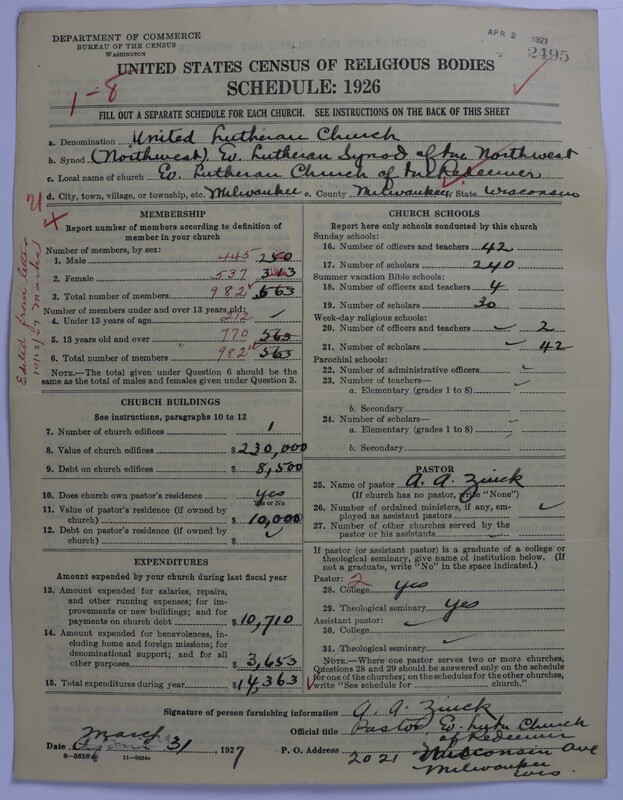 DEPARTMENT OF COMMERCE
BUREAU OF THE CENSUS
WASHINGTON
APR 2 1927
2495
UNITED STATES CENSUS OF RELIGIOUS BODIES
SCHEDULE: 1926
1-8
FILL OUT A SEPARATE SCHEDULE FOR EACH CHURCH. SEE INSTRUCTIONS ON THE BACK OF THIS SHEET
a. Denomination United Lutheran Church
b. Synod (Northwest) Ev. Lutheran Synod of the Northwest
c. Local name of church Ev. Lutheran Church of the Redeemer
d. City, town, village, or township, etc. Milwaukee e. County Milwaukee f. State Wisconsin
Edited from letter
10/13/27
MEMBERSHIP
Report number of members according to definition of
member in your church
Number of members, by sex:
1. Male 445 250
2. Female 537 313
3. Total number of members 982 563
Number of members under and over 13 years old:
4. Under 13 years of age 212 ✓
5. 13 years old and over 770 563
6. Total number of members 982 563
NOTE.—The total given under Question 6 should be the
same as the total of males and females given under Question 3.
CHURCH BUILDINGS
See instructions, paragraphs 10 to 12
7. Number of church edifices 1
8. Value of church edifices $230,000
9. Debt on church edifices $8,500
10. Does church own pastor's residence yes
Yes or No
11. Value of pastor's residence (if owned by
church) $10,000
12. Debt on pastor's residence (if owned by
church) $ ✓
EXPENDITURES
Amount expended by your church during last fiscal year
13. Amount expended for salaries, repairs,
and other running expenses; for im-
provements or new buildings; and for
payments on church debt $10,710
14. Amount expended for benevolences, in-
cluding home and foreign missions; for
denominational support; and for all
other purposes $3,653
15. Total expenditures during year $14,363
CHURCH SCHOOLS
Report here only schools conducted by this church
Sunday schools:
16. Number of officers and teachers 42
17. Number of scholars 240
Summer vacation Bible schools:
18. Number of officers and teachers 4
19. Number of scholars 30
Week-day religious schools:
20. Number of officers and teachers 2
21. Number of scholars 42
Parochial schools:
22. Number of administrative officers ✓
23. Number of teachers—
a. Elementary (grades 1 to 8) ✓
b. Secondary
24. Number of scholars—
a. Elementary (grades 1 to 8) ✓
b. Secondary
PASTOR
25. Name of pastor A. A. Zinck
(If church has no pastor, write "None")
26. Number of ordained ministers, if any, em-
ployed as assistant pastors ✓
27. Number of other churches served by the
pastor or his assistants ✓
If pastor (or assistant pastor) is a graduate of a college or
theological seminary, give name of institution below. (If
not a graduate, write "No" in the space indicated.)
Pastor: 2
28. College yes
29. Theological seminary yes
Assistant pastor:
30. College ✓
31. Theological seminary ✓
NOTE.—Where one pastor serves two or more churches,
Questions 28 and 29 should be answered only on the schedule
for one of the churches; on the schedules for the other churches,
write "See schedule for church."
Signature of person furnishing information A. A. Zinck
Official title Pastor Ev. Luth Church
of Redeemer
Date March 31, 1927
P. O. Address 2021 Wisconsin Ave
Milwaukee
Wis.